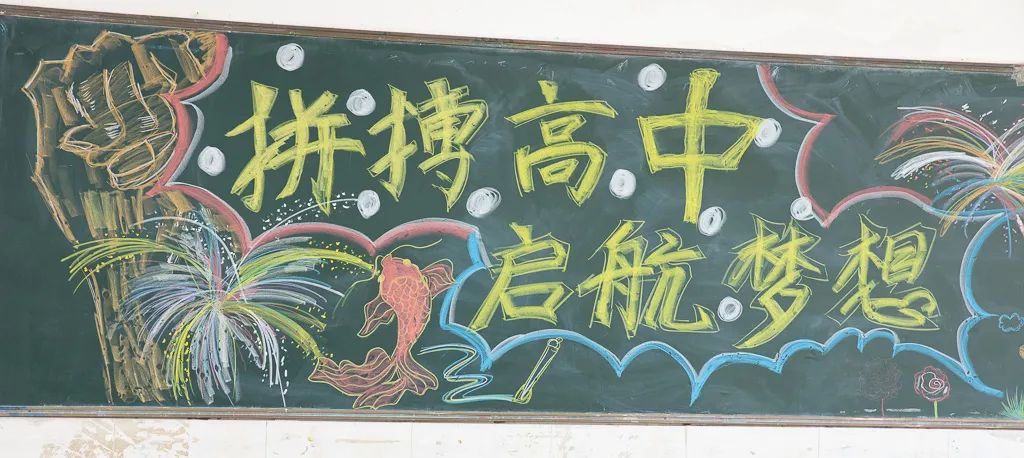 拼搏高中
启航梦想